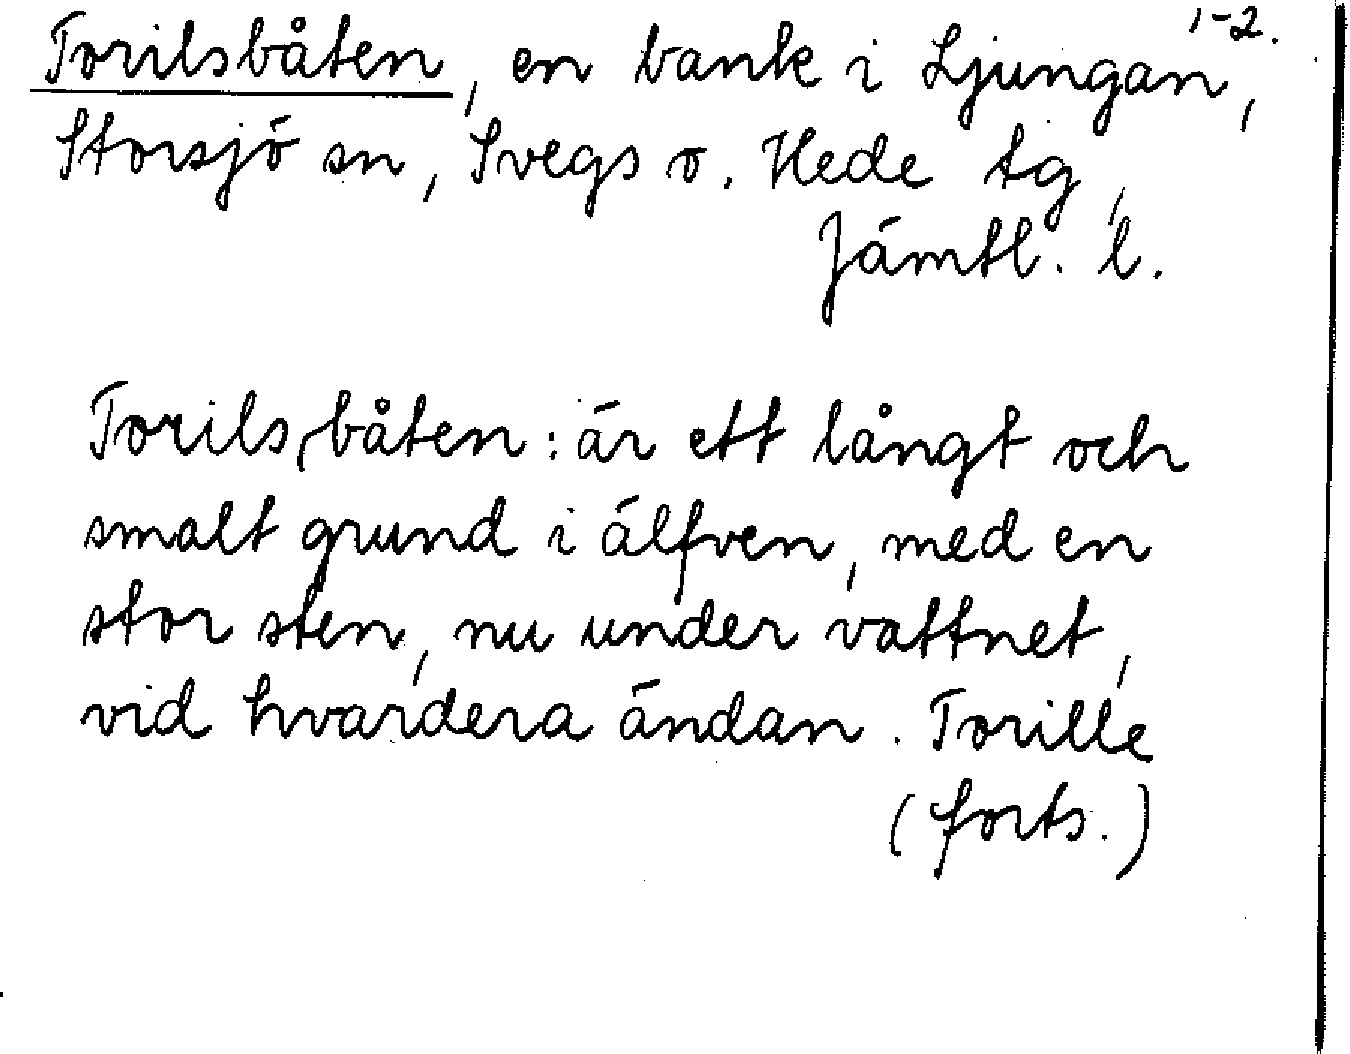 1-2.
Torilsbåten, en bank i Ljungan,
Storsjö sn, Svegs o. Hede tg,
Jämtl. l.
Torils,båten: är ett långt och
smalt grund i älfven, med en
stor sten, nu under vattnet,
vid hvardera ändan. Torille
(forts.)